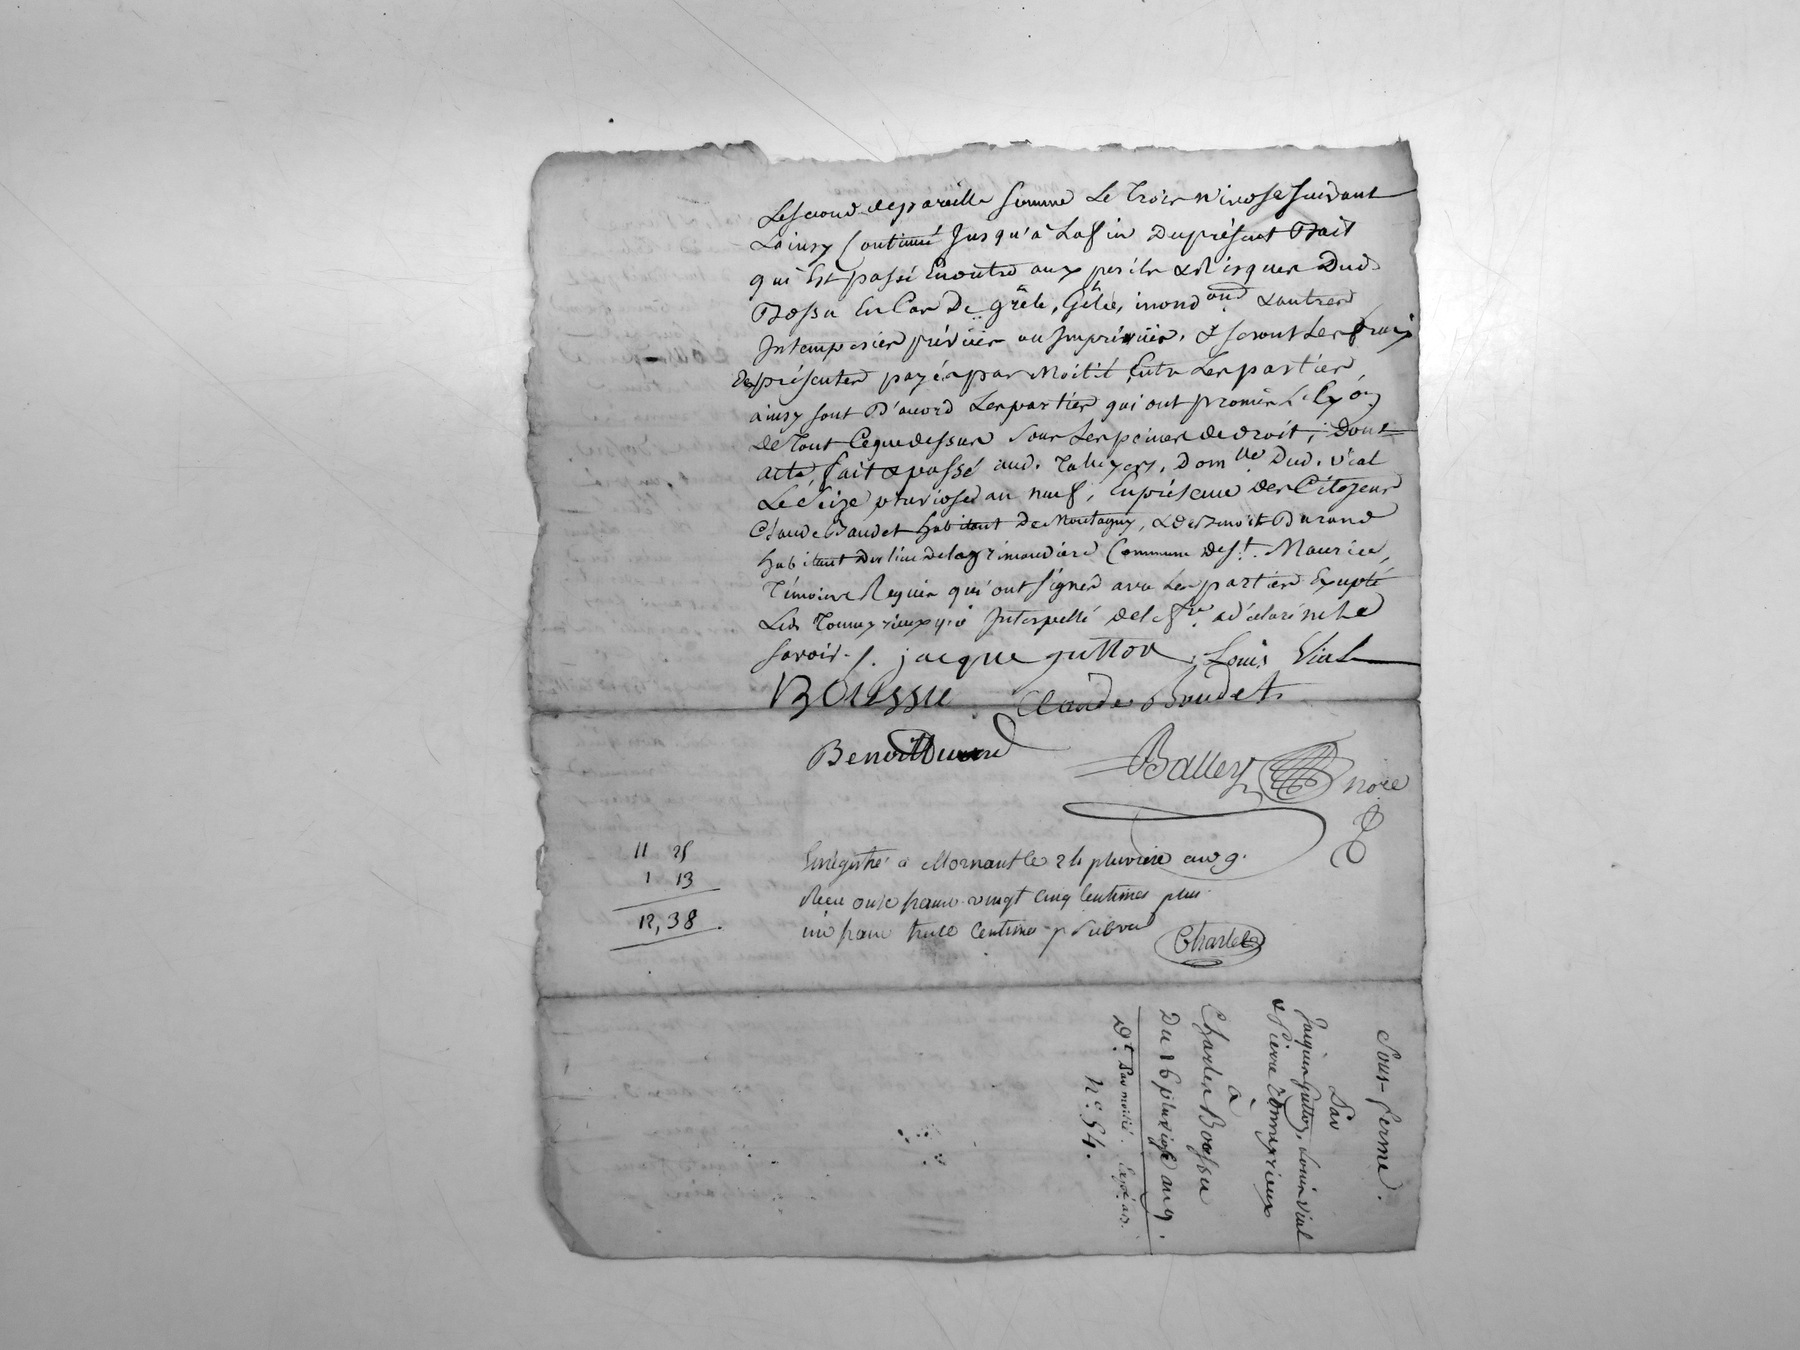 Le second de pareille somme Le Trois Nivose suivant
& ainsy Continué Jusqu'à La fin Du présent Bail
qui Est passé En outre aux perils & Risques Dud.
Bossu En Cas De grêle, Gélée, inond.on & autres
Intemperies prévües ou Imprévües. & seront Les frais
des présentes payés par Moitié Entre Les parties,
ainsy sont D'acord Les parties qui ont promis L'Ex.on
De Tout Ceque dessus sous Les peines de droit, Dont
acte, fait & passé aud. Taluyers, Dom.lle Dud. Vial
Le Seize pluviose an neuf, En présence Des Citoyens
Claude Baudet habitant De Montagny, & De Benoit Durand
habitant Du lieu de la grimaudiere Commune de St. Maurice,
Témoins Requis qui ont signé avec Les parties Excepté
Led. Tomeyrieux qui Interpellé de le f.re a déclaré ne Le
savoir. /. jacque gutton Louis Vial
BOUSSU Claude Boudet
Benoit Durand
Balley nore
11 25
1 13
12,38
Enregistré a Mornant le 24 pluviose an 9.
Recu onze francs vingt cinq Centimes plus
un franc treize Centimes p. Subvend
Charlet
Sous-ferme.
Par
Jacques Gutton, Louis Vial
& Pierre Tomeyrieux
à
Charles Bossu
Du 16 pluviose an 9.
D.t Par moitié.
N.o 54.